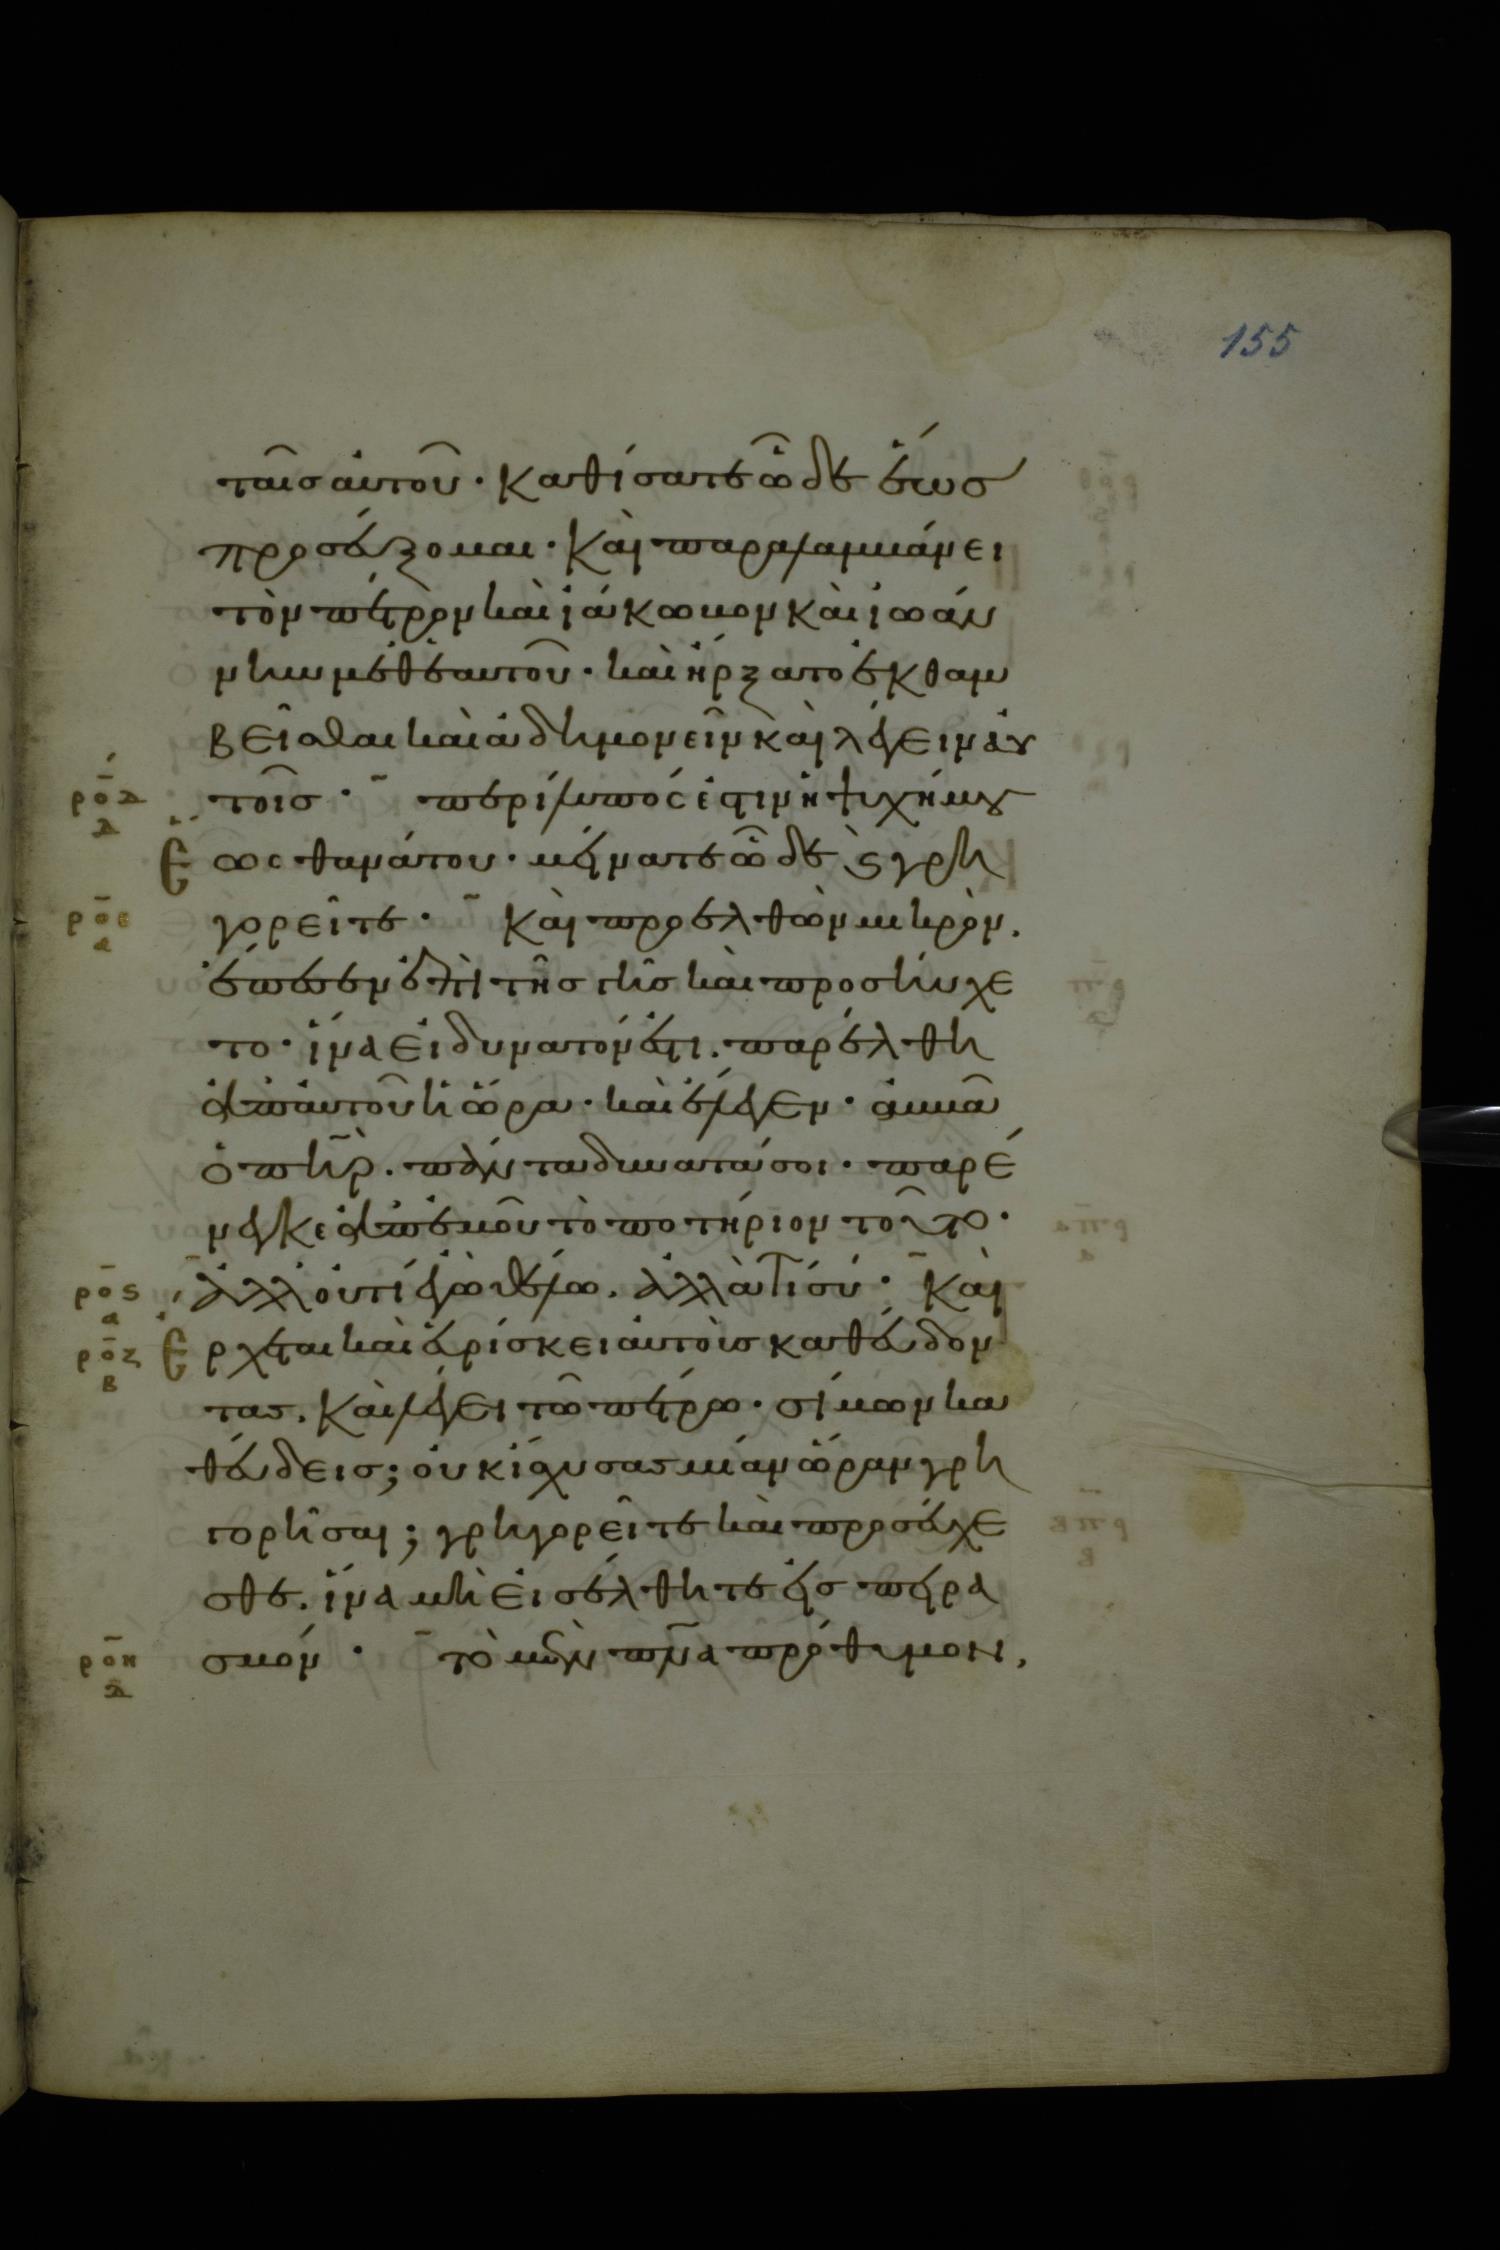 155
ταῖς αὐτοῦ· καθίσατε ὧδε ἕως
προσεύξομαι· καὶ παραλαμβάνει
τὸν πέτρον καὶ ἰάκωβον καὶ ἰωάν
νην μεθ' ἑαυτοῦ· καὶ ἤρξατο ἐκθαμ
βεῖσθαι καὶ ἀδημονεῖν καὶ λέγειν αὐ
ρο̄δ δ τοῖς· περίλυπός ἐστιν ἡ ψυχή μου
Ἕ ως θανάτου· μείνατε ὧδε ϛ γρη
ρο̄ε α γορεῖτε· καὶ προελθὼν μικρὸν.
ἔπεσεν ἐπὶ τῆς γῆς καὶ προσηύχε
το· ἵνα εἰ δυνατόν ἐστι. παρέλθη
ἀπ' αὐτοῦ ἡ ὥρα· καὶ ἔλεγεν· ἀββᾶ
ὁ πη̄ρ. πάντα δυνατά σοι· παρέ
νεγκε ἀπ' ἐμοῦ τὸ ποτήριον τοῦτο·
ρο̄ϛ α ἀλλ' οὐ τί ἐγὼ θέλω. ἀλλὰ τί σύ· καὶ
ρο̄ζ β Ἔ ρχεται καὶ εὑρίσκει αὐτοὺς καθεύδον
τας. καὶ λέγει τῶ πέτρω· σίμων κα
θεύδεις; οὐκ ἴσχυσας μίαν ὥραν γρη
γορῆσαι; γρηγορεῖτε καὶ προσεύχε
σθε. ἵνα μὴ εἰσέλθητε εἰς πειρα
ρο̄η δ σμόν· τὸ μὲν πν̄α πρόθυμον,